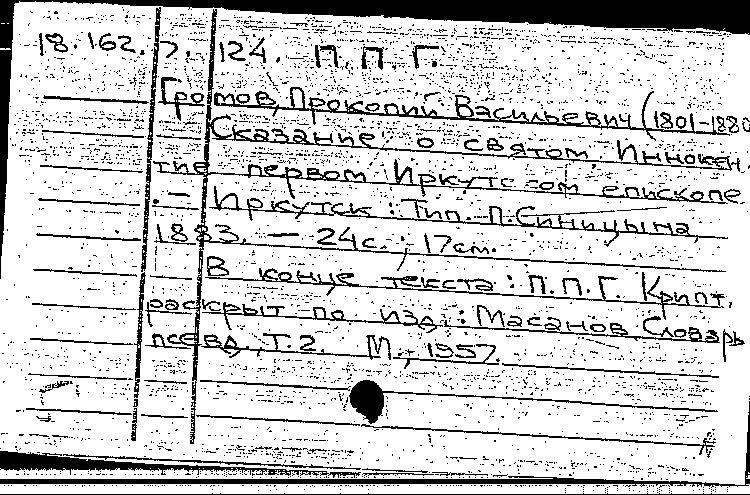 18.162.7.124. П.П.Г.
Громов, Прокопий Васильевич (1801-1880
Сказание о святом Иннокен-
тие первом Иркутском епископе
. — Иркутск : Тип. П.Синицына,
1883. — 24с. ; 17см.
В конце текста : П.П.Г. Крипт.
раскрыт по изд.: Масанов. Словарь
псевд., Т.2. М., 1957.